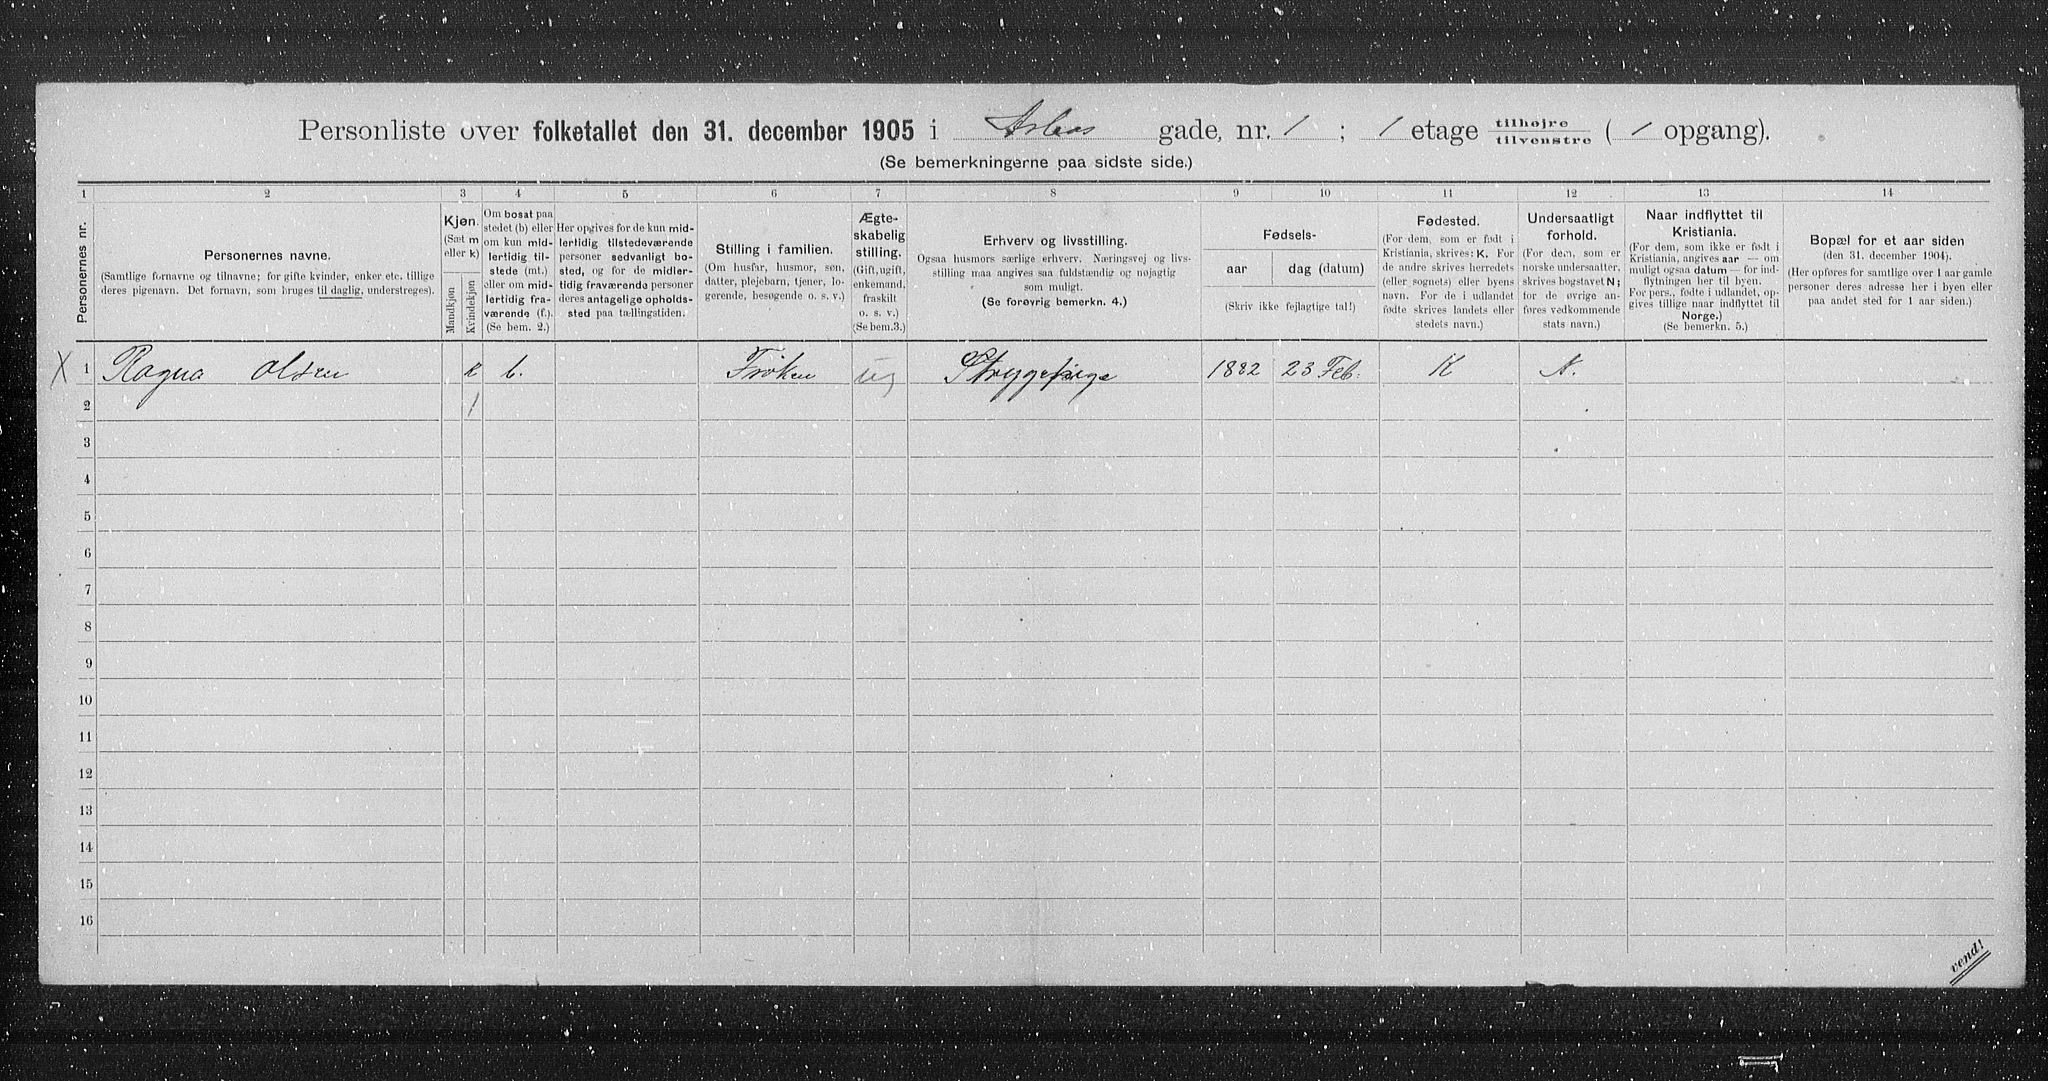 Personliste over folketallet den 31. december 1905 i Aslaas gade, nr. 1 ; 1 etage tilhøjre tilvenstre ( 1 opgang).
(Se bemerkningerne paa sidste side.)
1 2 3 4 5 6 7 8 9 10 11 12 13 14
Personernes nr.
Personernes navne.
(Samtlige fornavne og tilnavne; for gifte kvinder, enker etc. tillige
deres pigenavn. Det fornavn, som bruges til daglig, understreges).
Kjøn.
(Sæt m
eller k)
Mandkjøn
Kvindekjøn
Om bosat paa
stedet (b) eller
om kun mid-
lertidig til-
stede (mt.)
eller om mid-
lertidig fra-
værende (f.).
(Se bem. 2.)
Her opgives for de kun mid-
lertidig tilstedeværende
personer sedvanligt bo-
sted, og for de midler-
tidig fraværende personer
deres antagelige opholds-
sted paa tællingstiden.
Stilling i familien.
(Om husfar, husmor, søn,
datter, plejebarn, tjener, lo-
gerende, besøgende o. s. v.)
Ægte-
skabelig
stilling.
(Gift, ugift,
enkemand,
fraskilt
o. s. v.)
(Se bem.3.)
Erhverv og livsstilling.
Ogsaa husmors særlige erhverv. Næringsvej og livs-
stilling maa angives saa fuldstændig og nøjagtig
som muligt.
(Se forøvrig bemerkn. 4.)
Fødsels-
aar
dag (datum)
(Skriv ikke fejlagtige tal!)
Fødested.
(For dem, som er født i
Kristiania, skrives: K. For
de andre skrives herredets
(eller sognets) eller byens
navn. For de i udlandet
fødte skrives landets eller
stedets navn.)
Undersaatligt
forhold.
(For dem, som er
norske undersaatter,
skrives bogstavet N;
for de øvrige an-
føres vedkommende
stats navn.)
Naar indflyttet til
Kristiania.
(For dem, som ikke er født i
Kristiania, angives aar — om
muligt ogsaa datum — for ind-
flytningen her til byen.
For pers., fødte i udlandet, op-
gives tillige naar indflyttet til
Norge.)
(Se bemerkn. 5.)
Bopæl for et aar siden
(den 31. december 1904).
(Her opføres for samtlige over 1 aar gamle
personer deres adresse her i byen eller
paa andet sted for 1 aar siden.)
X 1 Ragna Olsen k b. Frøken ug Strygepige 1882 23 Feb. K N.
2 1
3
4
5
6
7
8
9
10
11
12
13
14
15
16
vend!